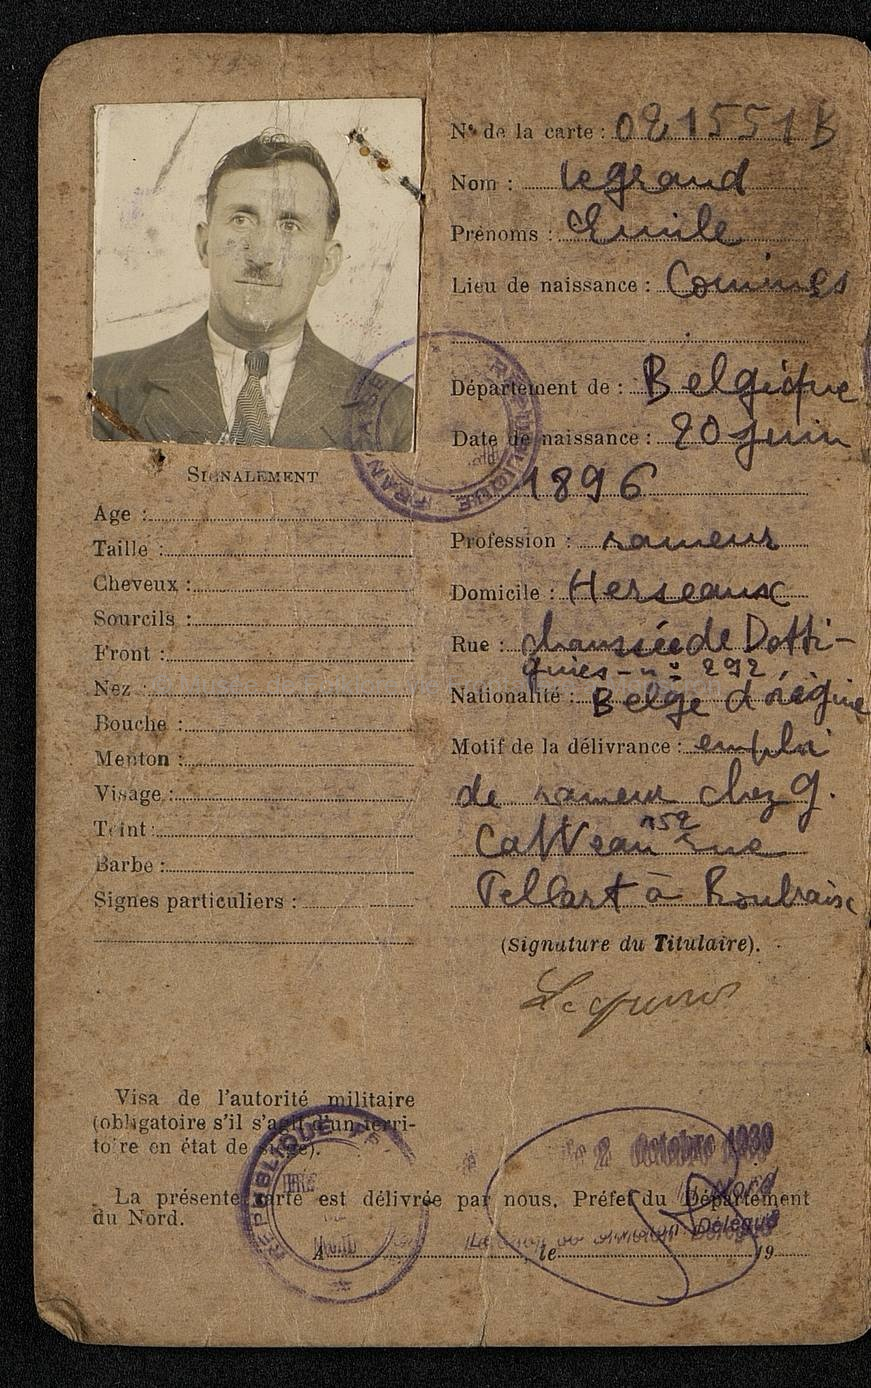 N° de la carte : 021551 B
Nom : Legrand
Prénoms : Emile
Lieu de naissance : Comines
Département de : Belgique
Date de naissance : 20 juin
1896
Profession : rameur
Domicile : Herseaux
Rue : chaussée de Dotti-
gnies - n° 292
Nationalité : Belge d'origine
Motif de la délivrance : emploi
de rameur chez G.
Catteau 152 rue
Tellart à Roubaix
(Signature du Titulaire).
Legrand
SIGNALEMENT
Age :
Taille :
Cheveux :
Sourcils :
Front :
Nez :
Bouche :
Menton :
Visage :
Teint :
Barbe :
Signes particuliers :
RÉPUBLIQUE FRANÇAISE
Visa de l'autorité militaire
(obligatoire s'il s'agit d'un terri-
toire en état de siège).
le 2 Octobre 1939
La présente carte est délivrée par nous, Préfet du Département
du Nord.
Nord
Délégué
A , le 19
RÉPUBLIQUE
NORD